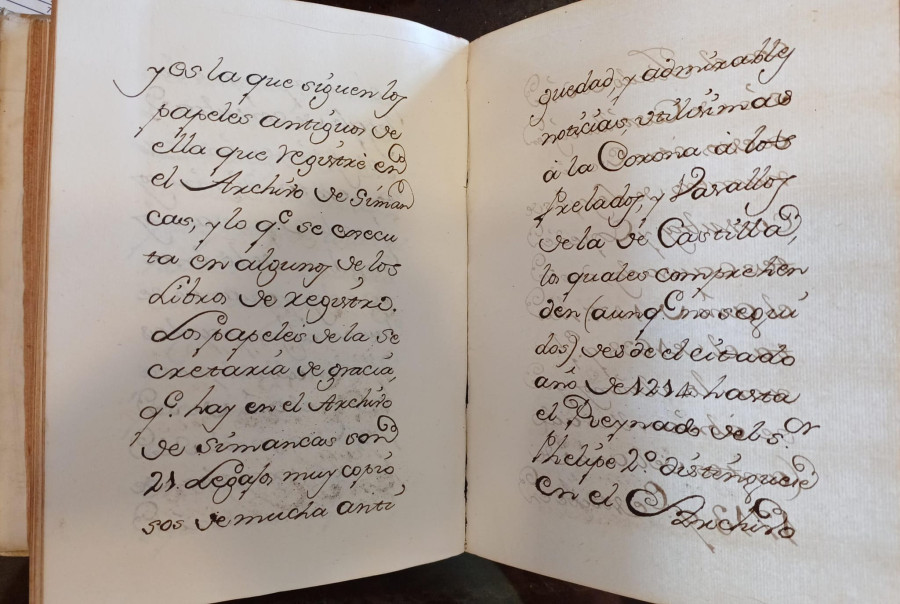 y os la que siguen los
papeles antiguos de
ella que registré en
el Archivo de Siman
cas, y lo q.e se execu
ta en algunos de los
Libros de registro.
Los papeles de la se
cretaria de gracia,
q.e hay en el Archivo
de Simancas son
21. Legajos muy copio
sos de mucha anti
guedad, y admirables
noticias, utilisimas
à la Corona à los
Prelados, y Vasallos
de la de Castilla,
los quales comprehen
den (aunq.e no segui
dos) desde el citado
año de 1214 hasta
el Reynado del s.or
Phelipe 2.o distinguese
en el Archivo